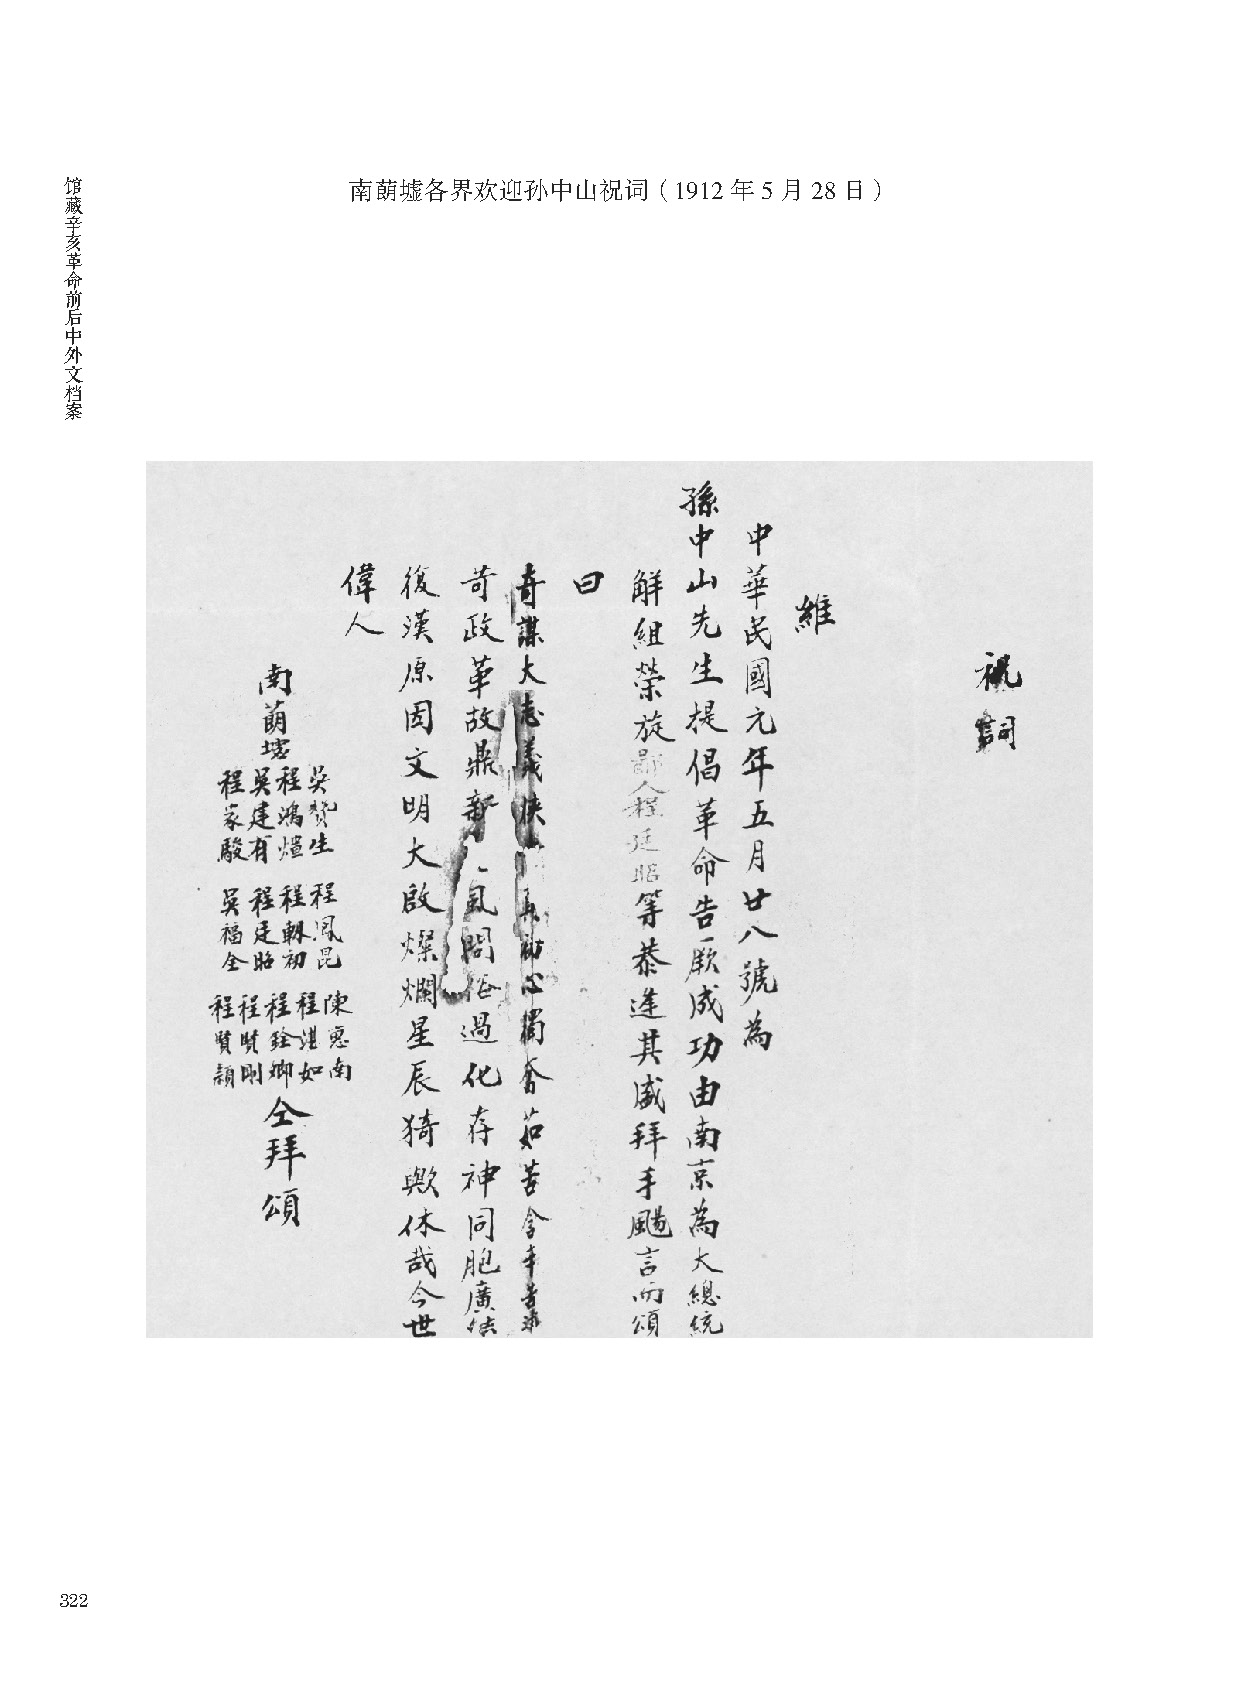 馆藏辛亥革命前后中外文档案
南蓢墟各界欢迎孙中山祝词（1912年5月28日）
祝詞
維
中華民國元年五月廿八號為
孫中山先生提倡革命告厥成功由南京為大總統
解組榮旋鄙人程廷昭等恭逢其盛拜手颺言而頌
曰
奇謀大志義俠 初心獨奮茹苦含辛普
苛政革故鼎新 問俗過化存神同胞廣
復漢原因文明大啟燦爛星辰猗歟休哉今世
偉人
南蓢墟
吳贊生 程鳳昆 陳惠南
程鴻 程軼初 程湛如
吳建有 程廷昭 程銓卿
程家駿 吳福全 程賢剛
程賢穎
仝拜頌
322